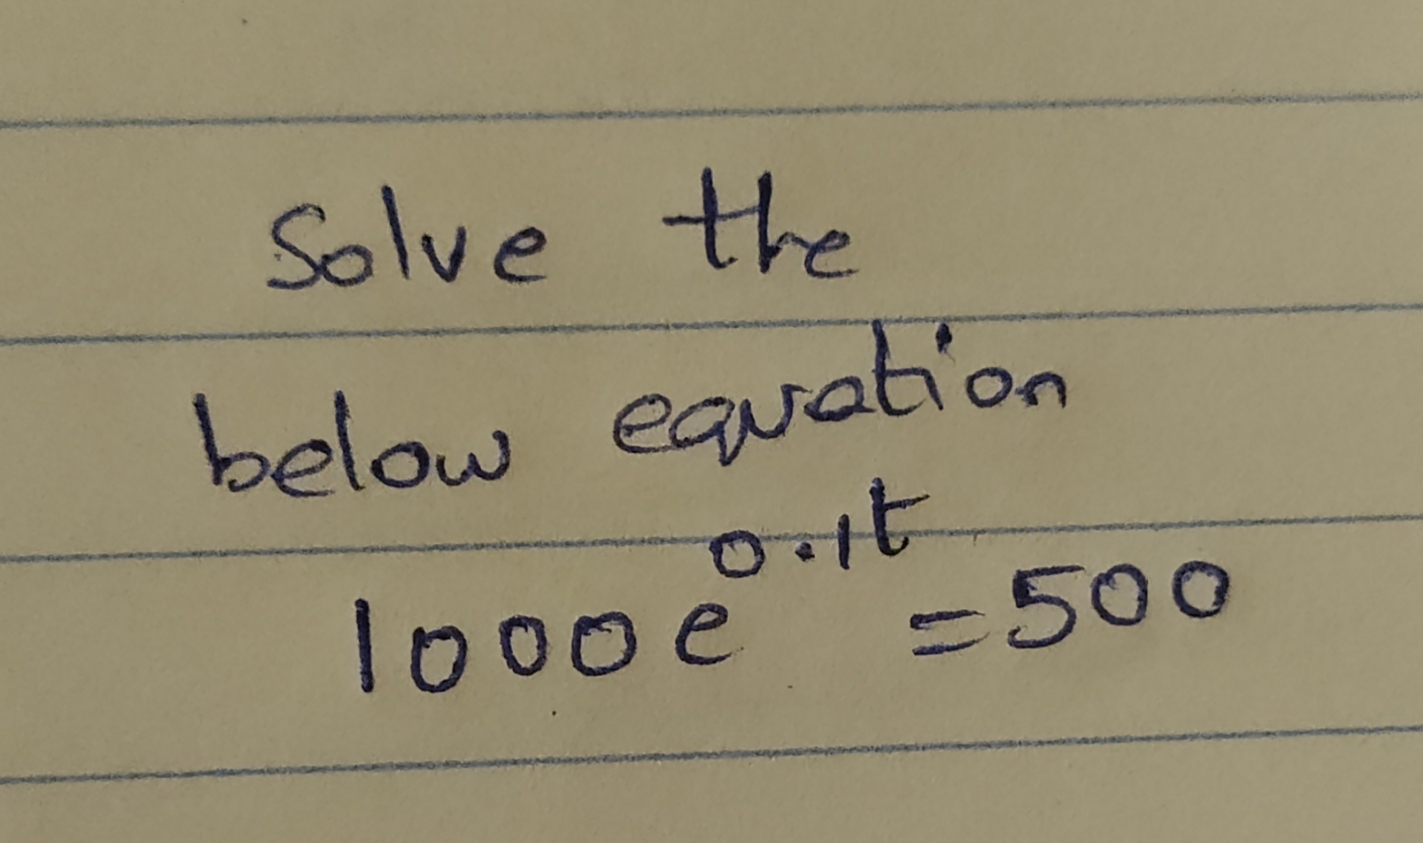 Solve the
below equation
1000e^0.1t = 500